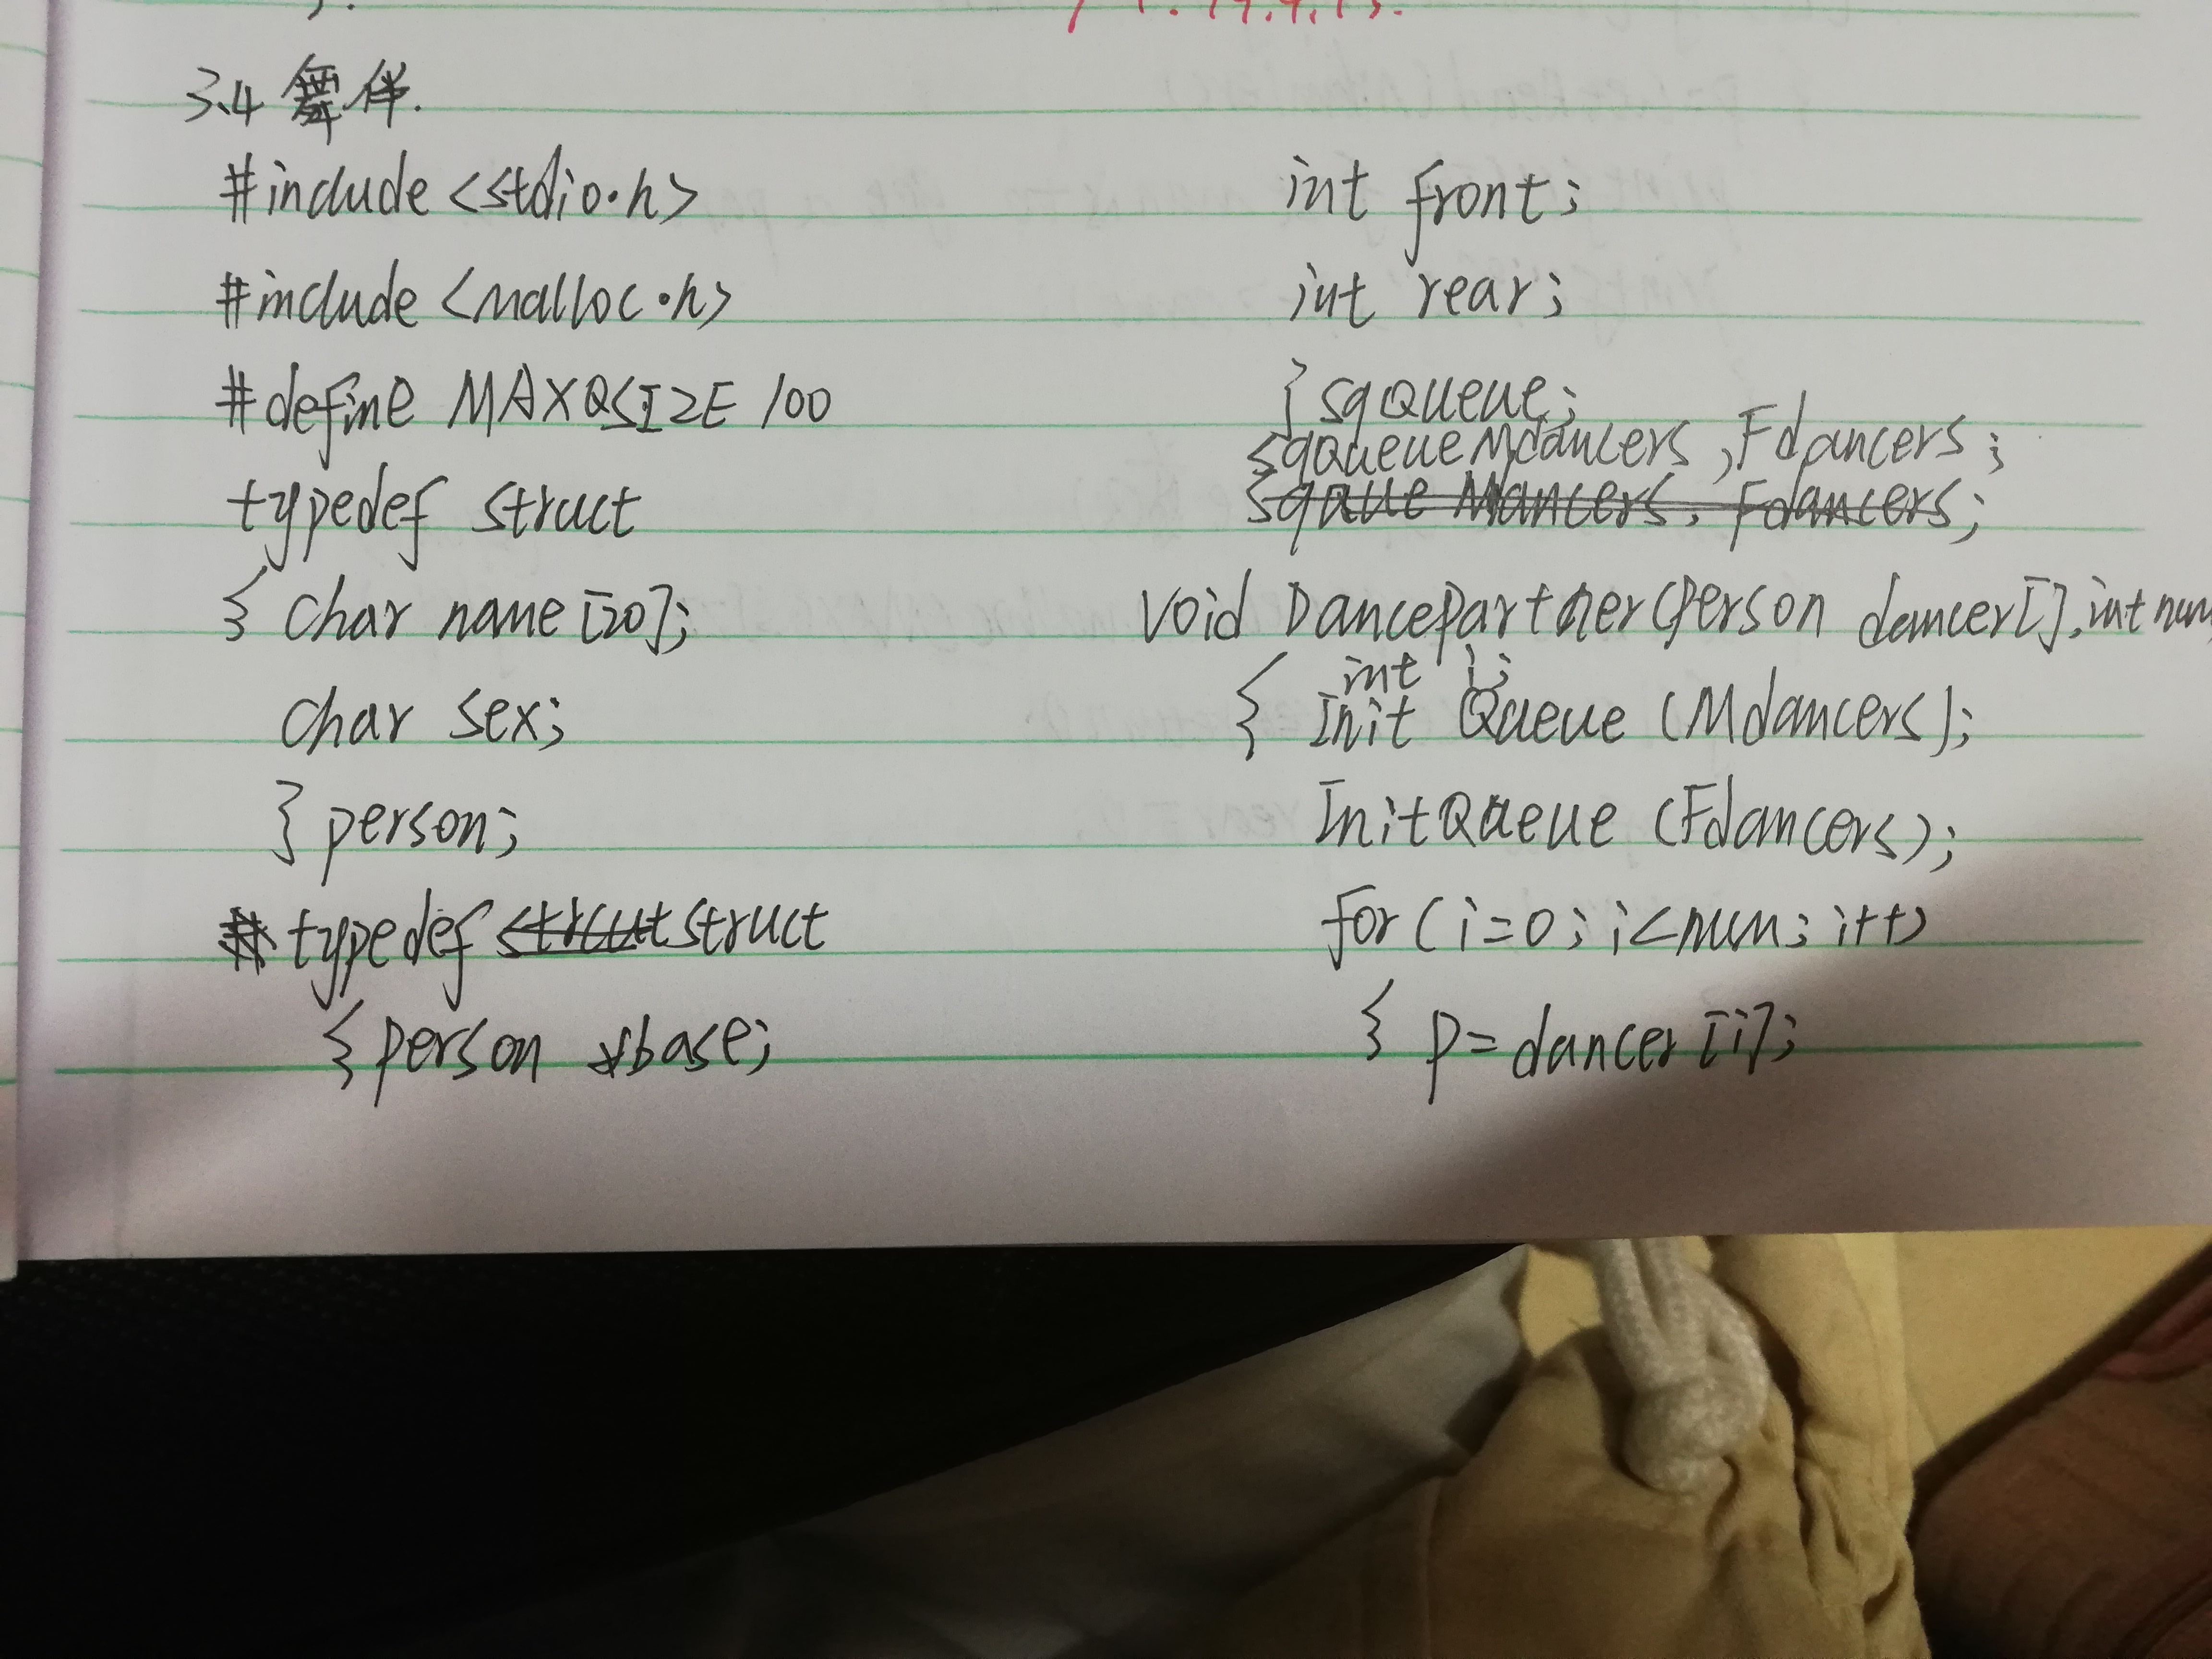 3.4 舞伴.
#include <stdio.h>
#include <malloc.h>
#define MAXQSIZE 100
typedef struct
{ char name [20];
char sex;
} person;
typedef struct
{ person *base;
int front;
int rear;
} sqQueue;
sqQueue Mdancers, Fdancers;
void DancePartner(person dancer[], int num
{ int i;
Init Queue (Mdancers);
InitQueue (Fdancers);
for (i=0; i<num; i++)
{ p= dancer [i];